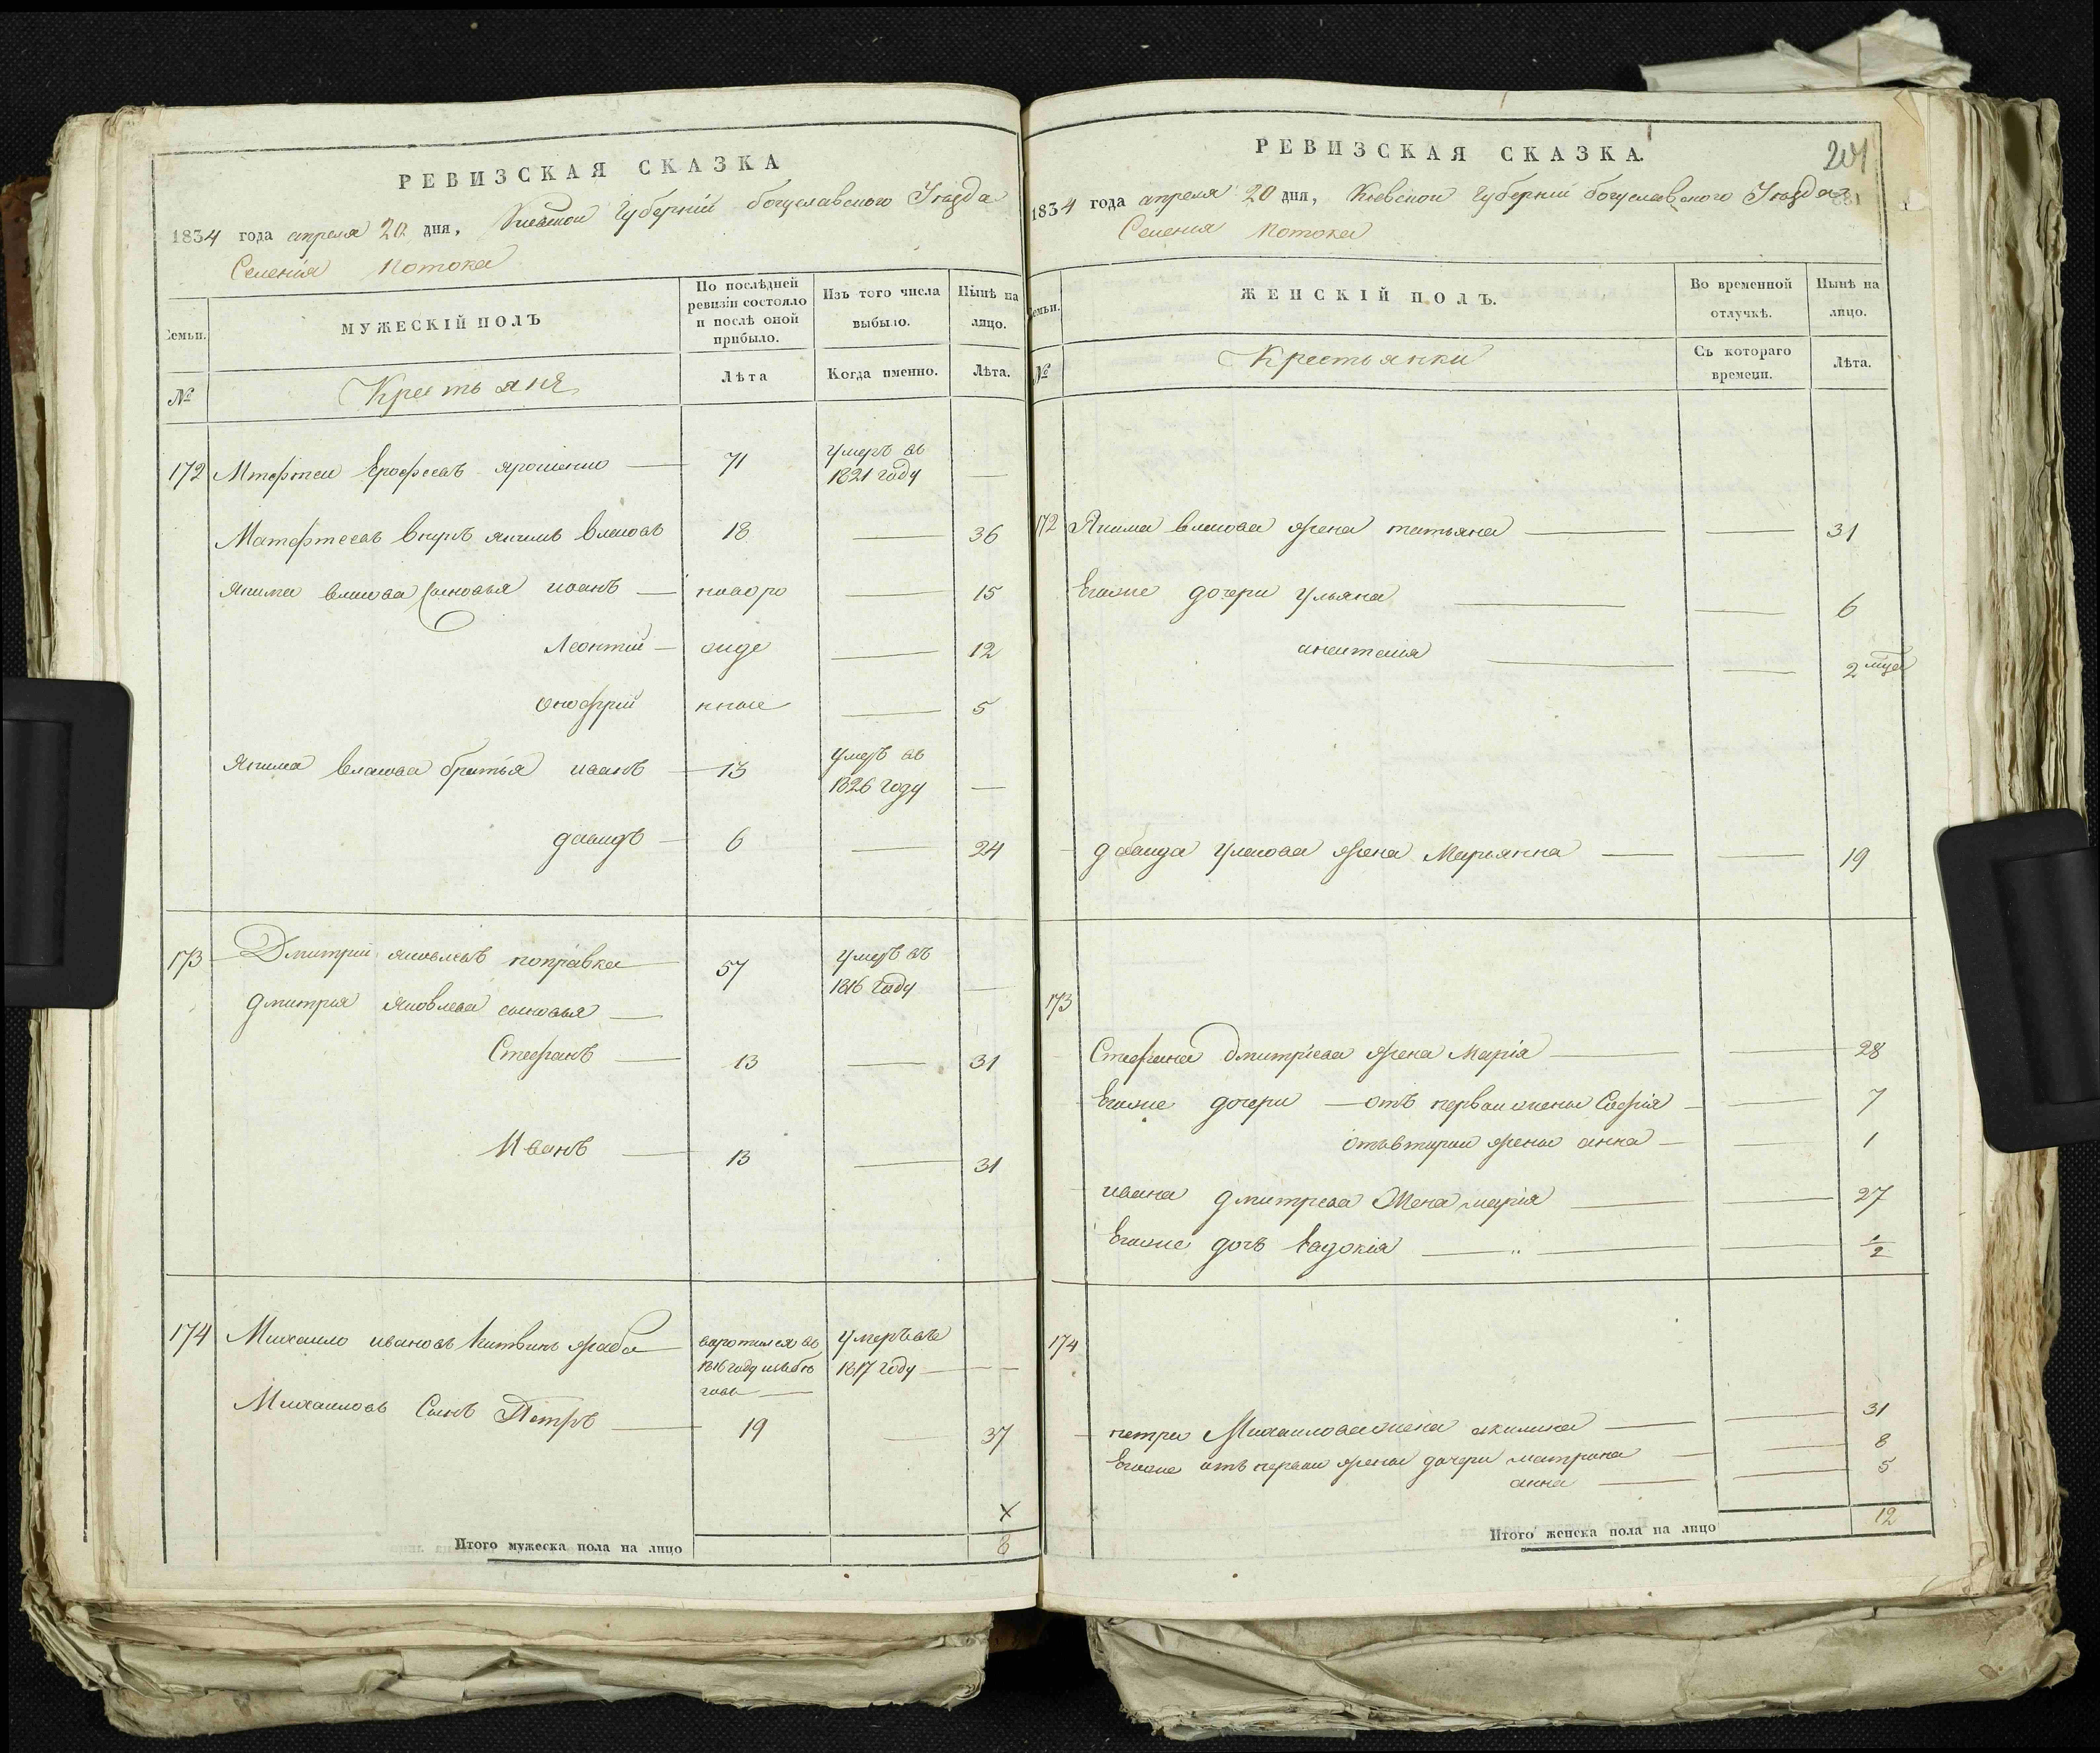 РЕВИЗСКАЯ СКАЗКА
1834 года апреля 20 дня, Киевской Губернии богуславского Уезда
Селения Потока
Семьи.
МУЖЕСКІЙ ПОЛЪ
По послѣдней ревизіи состояло и послѣ оной прибыло.
Изъ того числа выбыло.
Нынѣ на лицо.
№
Крестьяне
Лѣта
Когда именно.
Лѣта.
172 Мтофтеи Ерофеевъ ярошенко — 71 умеръ въ 1821 году —
Матофтеевъ внукъ якимъ власовъ 18 — 36
якима власова сыновья иванъ — новоро — 15
Леонтий — жде — 12
онофрий нные — 5
якима власова братья иванъ — 13 умеръ въ 1826 году —
давидъ — 6 — 24
173 Дмитрий яковлевъ поправка 57 умеръ въ 1816 году —
дмитрия яковлева сыновья —
Стефанъ — 13 — 31
Иванъ — 13 — 31
174 Михаило ивановъ Литвинъ жаба воротился въ 1816 году умеръ въ 1817 году — —
Михаиловъ Сынъ Петръ — 19 — 37
Итого мужеска пола на лицо 8
РЕВИЗСКАЯ СКАЗКА.
201
1834 года апреля 20 дня, Киевской Губернии богуславского Уезда
Селения Потока
Семьи.
ЖЕНСКІЙ ПОЛЪ.
Во временной отлучкѣ.
Нынѣ на лицо.
№
Крестьянки
Съ котораго времени.
Лѣта.
172 Якима власова жена татьяна — — 31
Егоже дочери ульяна — — 6
— — 2 мца
давида уласова жена Марьянна — — 19
173
Стефана дмитриева жена Марія — — 28
Егоже дочери — отъ первои жены Софія — — 7
отвтарои жены анна — — 1
ивана дмитрева Жена марія — — 27
Егоже дочь Евдокія — — 1/2
174
петра Михаилова жена акилина — — 31
Егоже отъ первои жены дочери матрона — — 8
анна — — 5
Итого женска пола на лицо 12